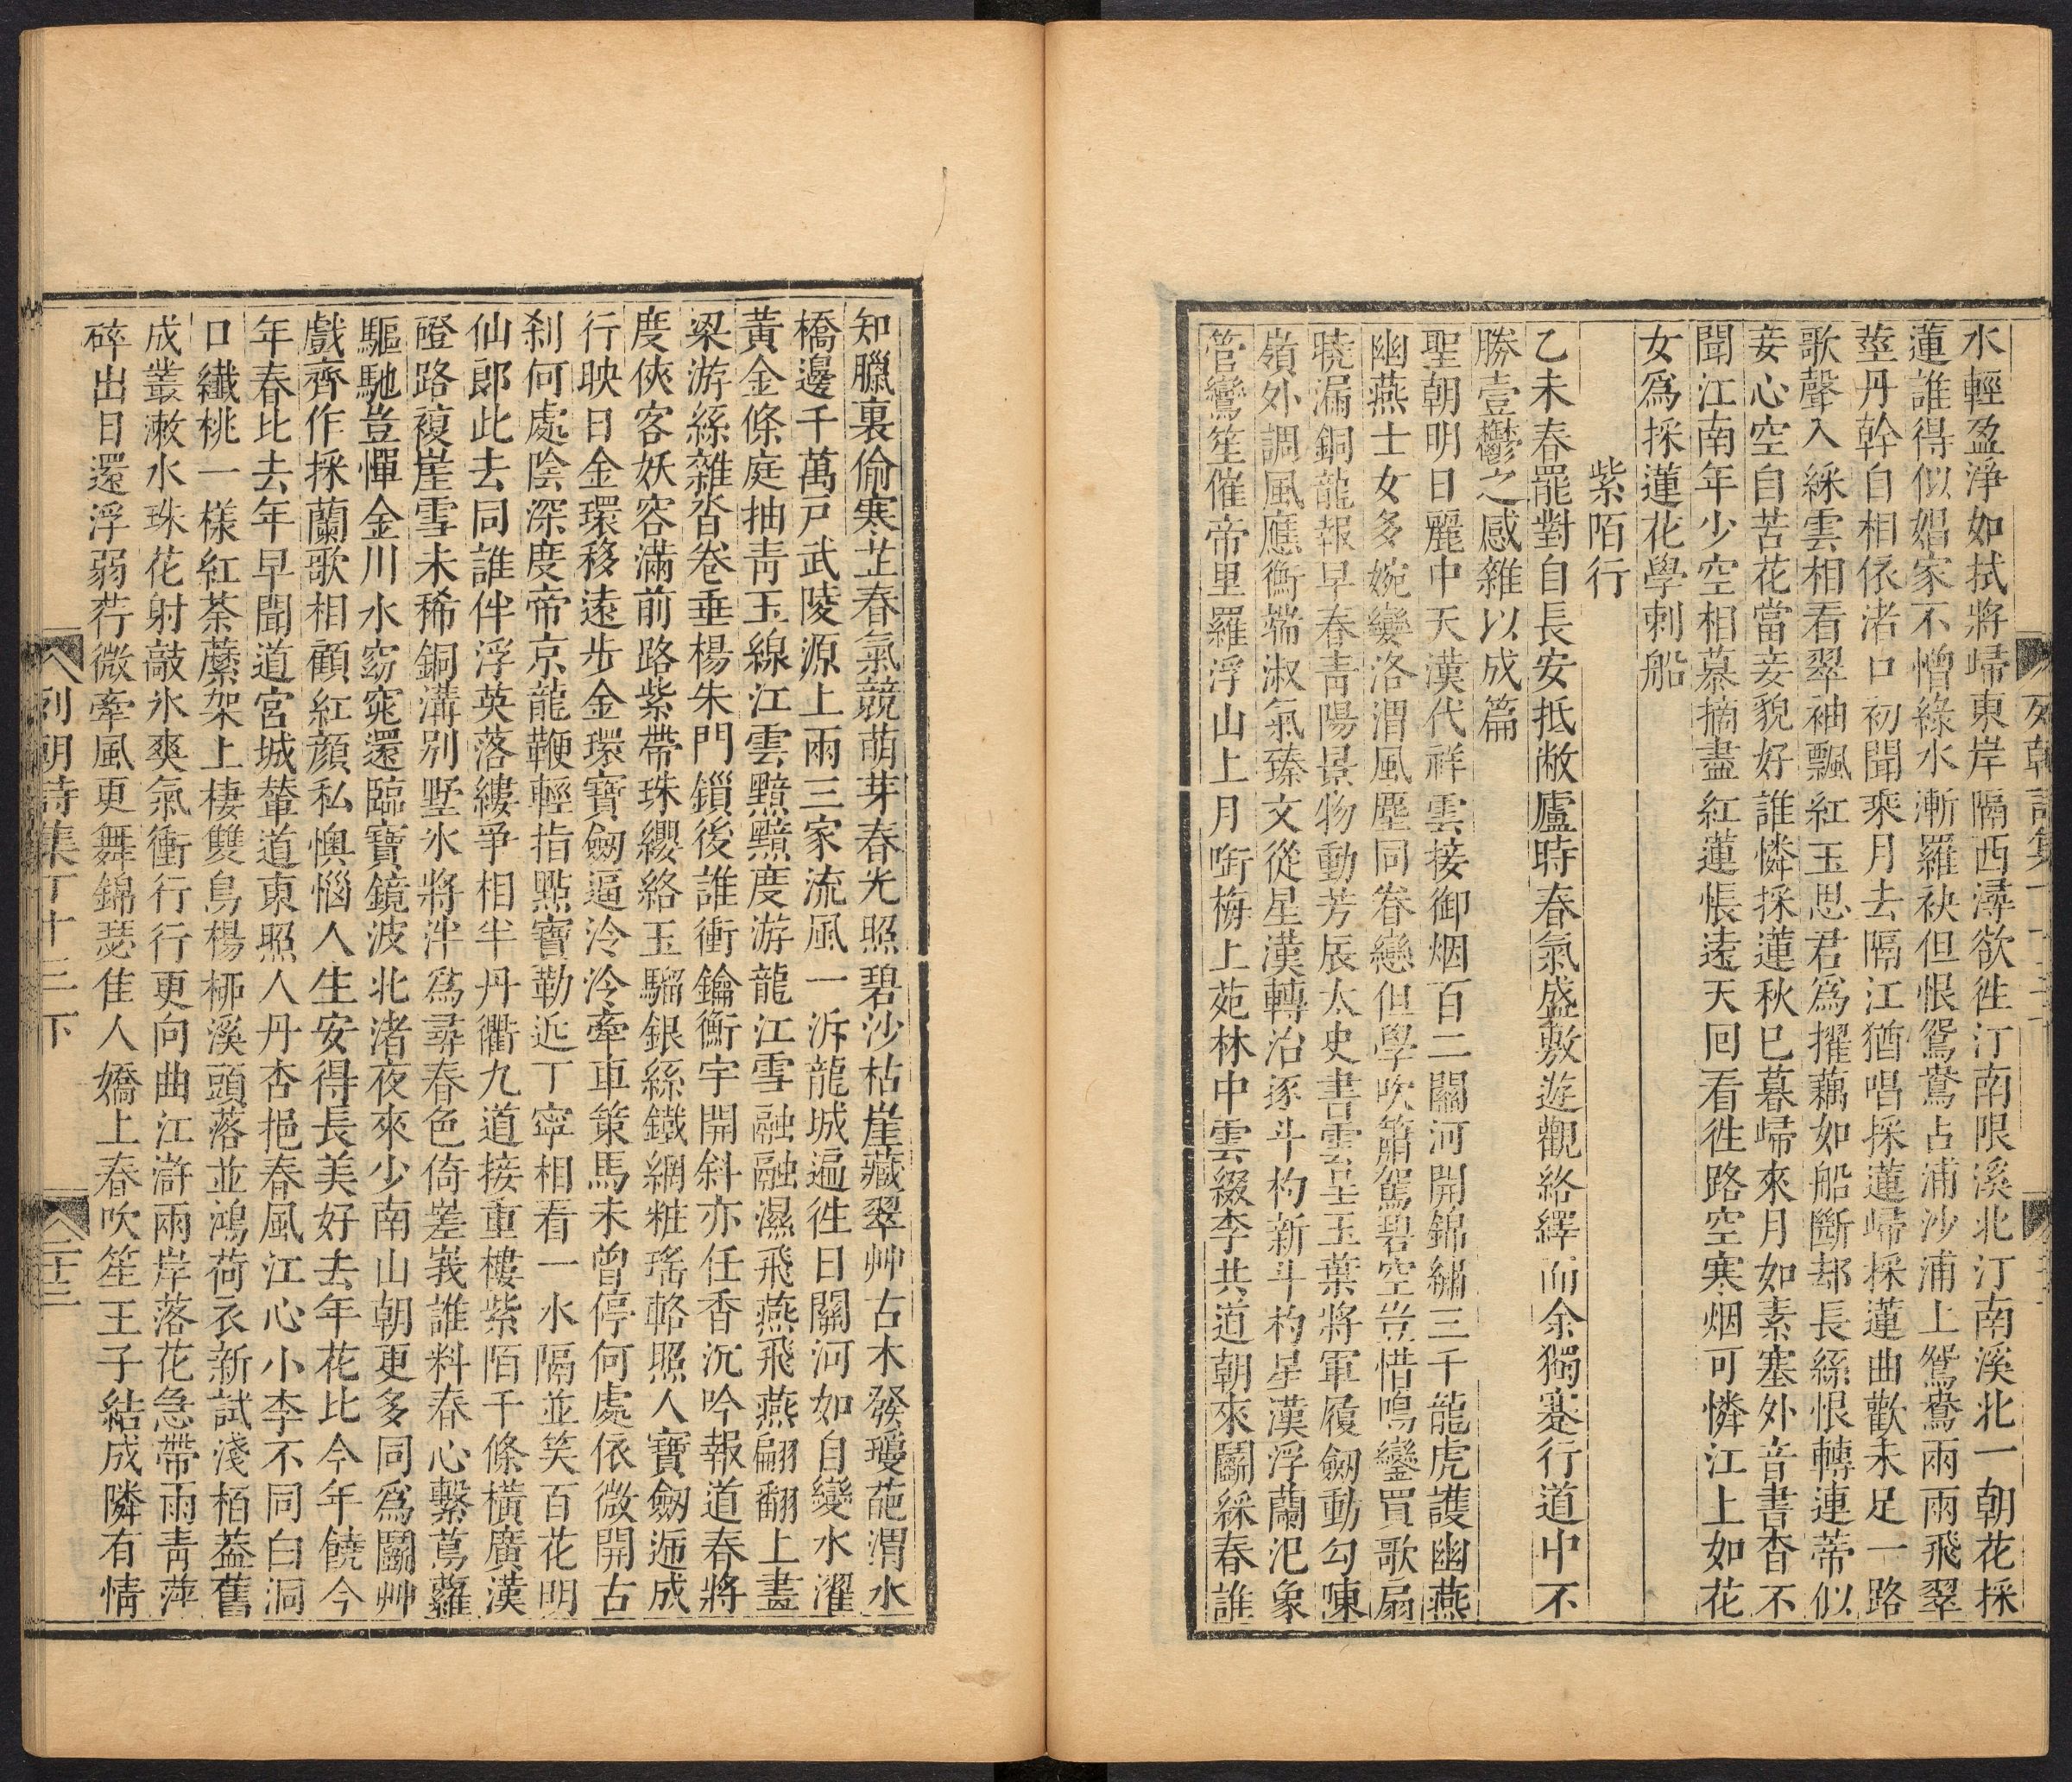 水輕盈淨如拭將歸東岸隔西潯欲徃汀南限溪北汀南溪北一朝花採
蓮誰得似娼家不憎綠水漸羅袂但恨鴛鴦占浦沙浦上鴛鴦兩兩飛翠
莖丹幹自相依渚口初聞乘月去隔江猶唱採蓮歸採蓮曲歡未足一路
歌聲入綵雲相看翠袖飄紅玉思君爲擢藕如船斷却長絲恨轉連蒂似
妾心空自苦花當妾貌好誰憐採蓮秋已暮歸來月如素塞外音書杳不
聞江南年少空相慕摘盡紅蓮悵遠天回看徃路空寒烟可憐江上如花
女爲採蓮花學刺船
紫陌行
乙未春罷對自長安抵敝廬時春氣盛敷遊觀絡繹而余獨蹇行道中不
勝壹鬱之感雜以成篇
聖朝明日麗中天漢代祥雲接御烟百二關河開錦繡三千龍虎護幽燕
幽燕士女多婉孌洛渭風塵同眷戀但學吹簫駕碧空豈惜鳴鑾買歌扇
曉漏銅龍報早春靑陽景物動芳辰太史書雲呈玉葉將軍履劔動勾陳
嶺外調風應衡端淑氣臻文從星漢轉治逐斗杓新斗杓星漢浮蘭汜象
管鸞笙催帝里羅浮山上月啣梅上苑林中雲綴李共道朝來鬭綵春誰
知臘裏偷寒芷春氣競萌芽春光照碧沙枯崖藏翠艸古木發瓊葩渭水
橋邊千萬戸武陵源上兩三家流風一泝龍城遍徃日關河如自變水濯
黃金條庭抽靑玉線江雲黯黯度游龍江雪融融濕飛燕飛燕翩翻上畫
梁游絲雜沓卷垂楊朱門鎻後誰衝鑰衡宇開斜亦任香沉吟報道春將
度俠客妖容滿前路紫帶珠纓絡玉騮銀絲鐵網粧瑤輅照人寶劔迤成
行映日金環移遠步金環寶劔逼泠泠牽車策馬未曾停何處依微開古
刹何處陰深度帝京龍鞭輕指點寶勒近丁寧相看一水隔並笑百花明
仙郎此去同誰伴浮英落縷爭相半丹衢九道接重樓紫陌千條橫廣漢
磴路複崖雪未稀銅溝別墅氷將泮爲尋春色倚嵳峩誰料春心繫蔦蘿
驅馳豈憚金川水窈窕還臨寶鏡波北渚夜來少南山朝更多同爲鬭艸
戲齊作採蘭歌相顧紅顔私懊惱人生安得長美好去年花比今年饒今
年春比去年早聞道宮城輦道東照人丹杏挹春風江心小李不同白洞
口纖桃一樣紅荼蘼架上棲雙鳥楊桺溪頭落並鴻荷衣新試淺栢葢舊
成叢漱水珠花射敲氷爽氣衝行行更向曲江滸兩岸落花急帶雨靑萍
碎出日還浮弱荇微牽風更舞錦瑟隹人嬌上春吹笙王子結成隣有情
列朝詩集丁十三下